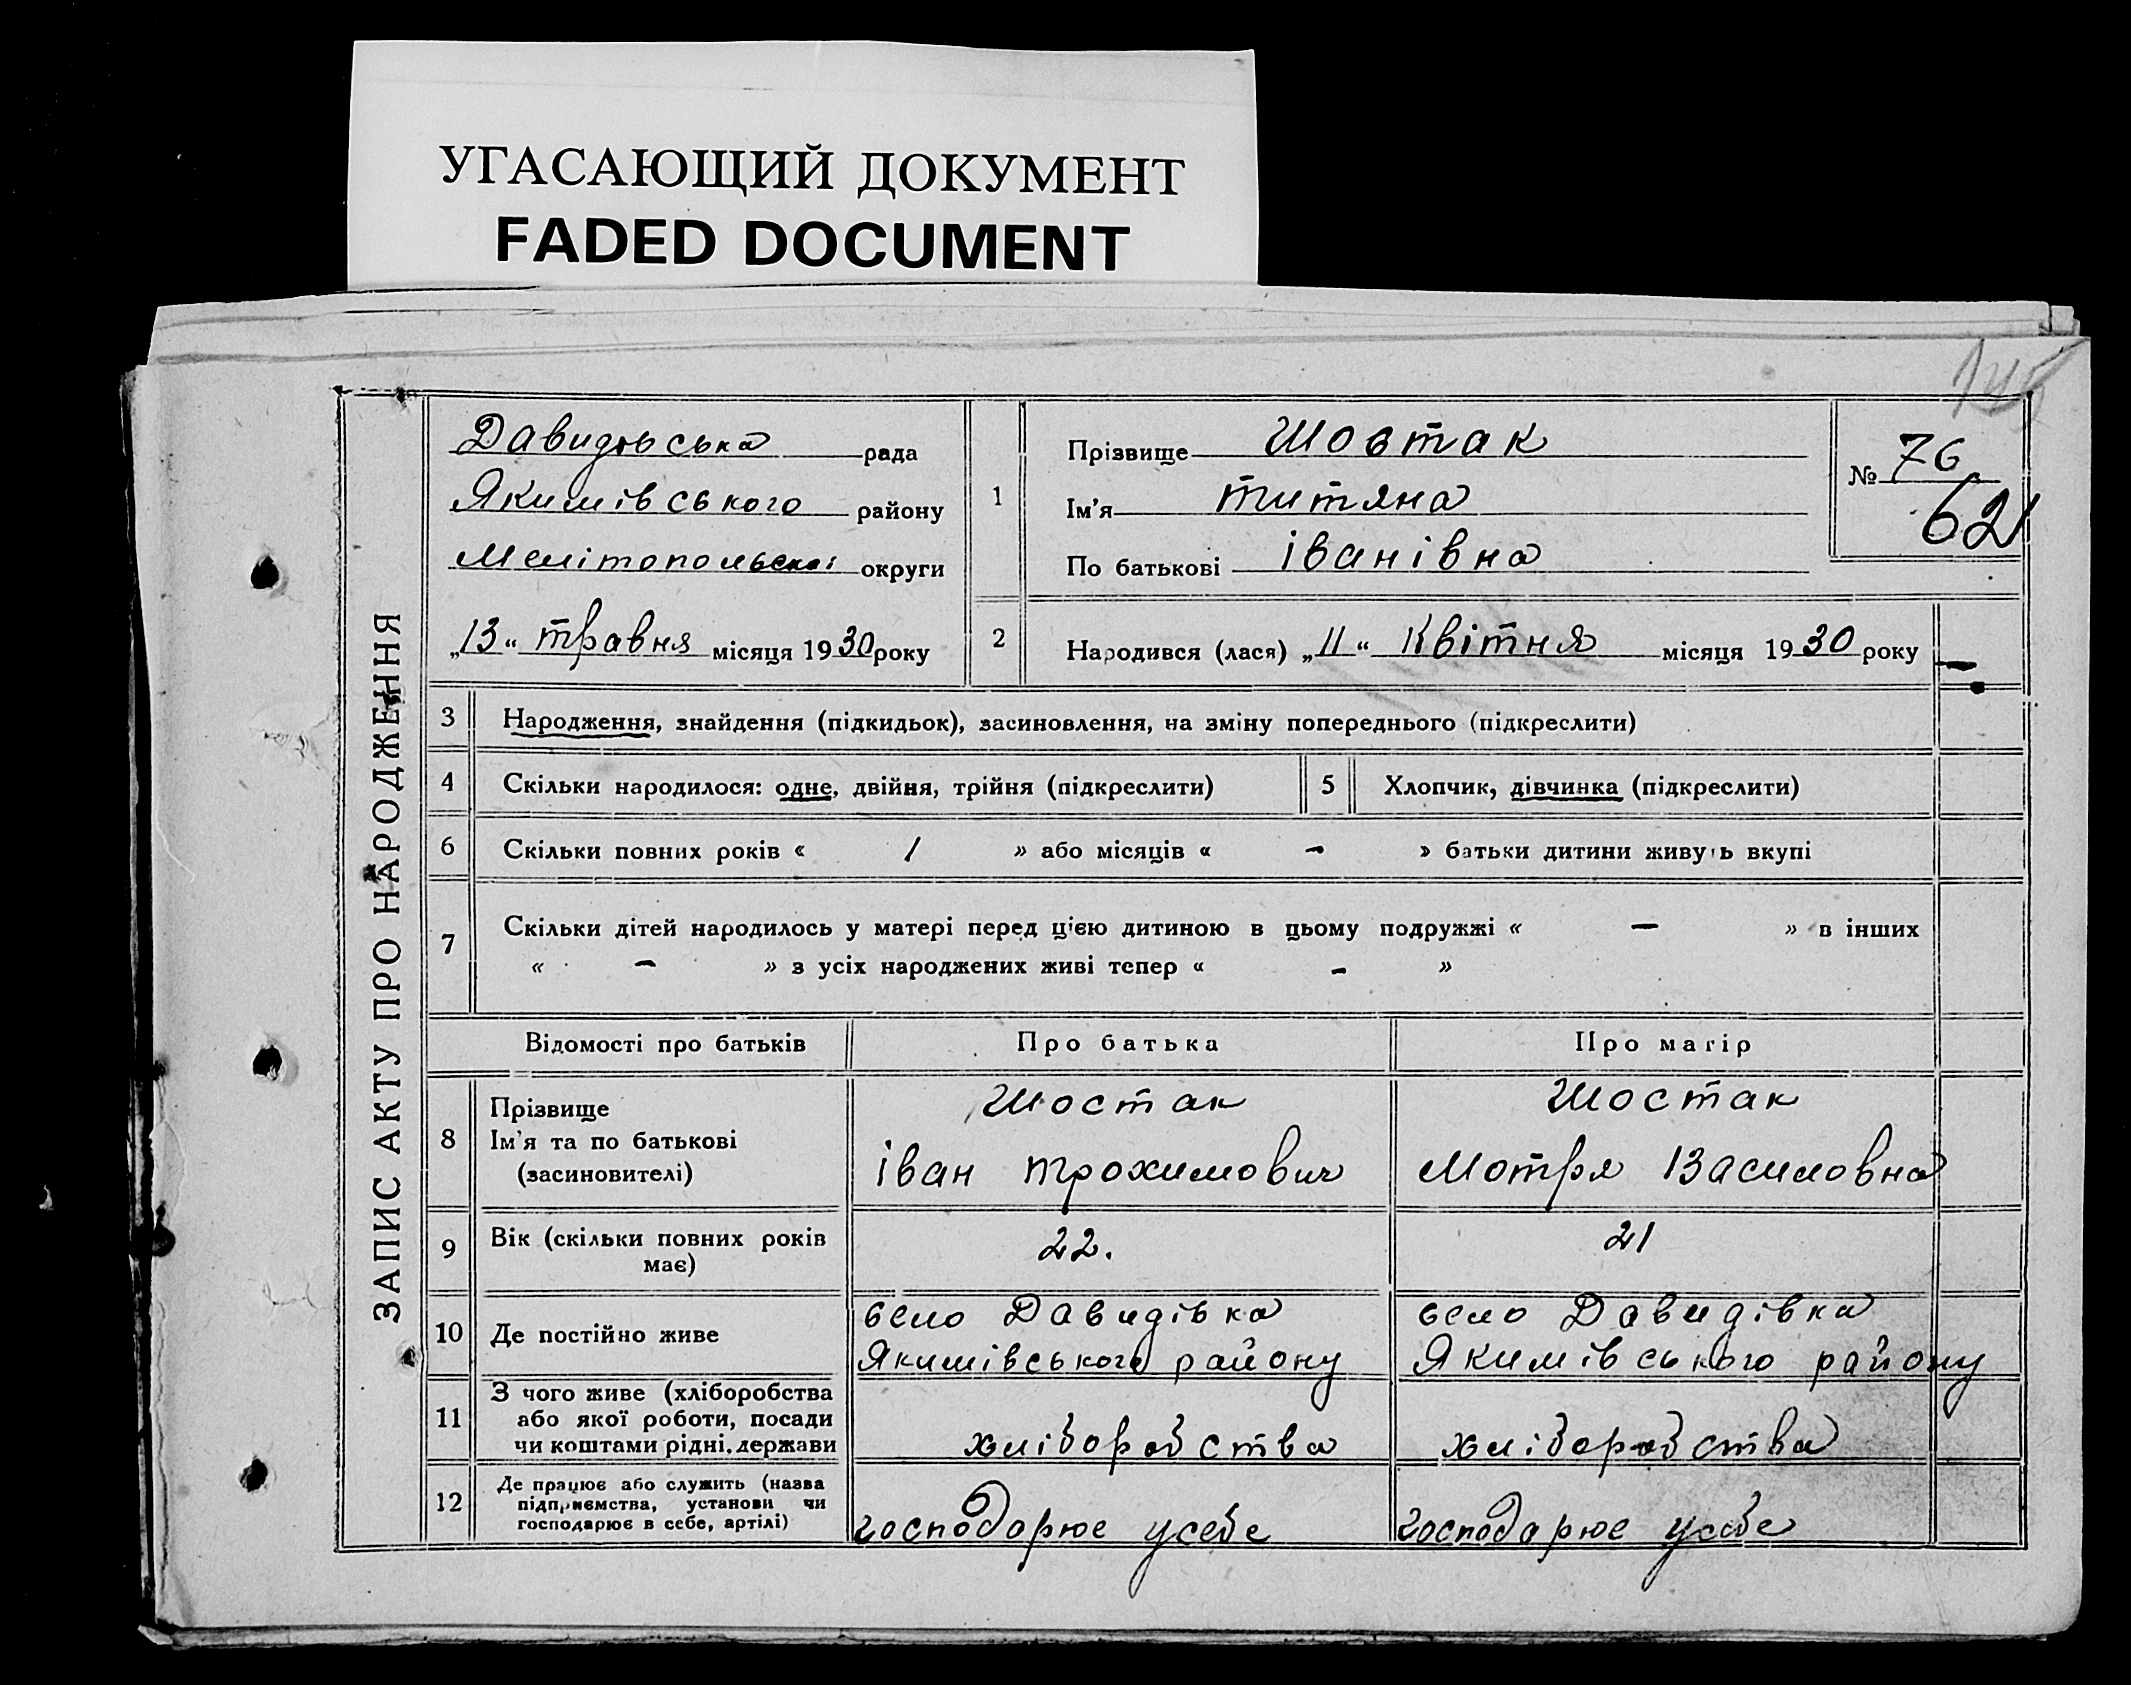 УГАСАЮЩИЙ ДОКУМЕНТ
FADED DOCUMENT
ЗАПИС АКТУ ПРО НАРОДЖЕННЯ
Давидовська рада
Якимівського району
Мелітопольскої округи
„13“ травня місяця 1930 року
1
Прізвище Шостак
Ім'я Титяна
По батькові Іванівна
№ 76
62
2
Народився (лася) „11“ Квітня місяця 1930 року
3 Народження, знайдення (підкидьок), засиновлення, на зміну попереднього (підкреслити)
4 Скільки народилося: одне, двійня, трійня (підкреслити) 5 Хлопчик, дівчинка (підкреслити)
6 Скільки повних років « 1 » або місяців « – » батьки дитини живуть вкупі
7 Скільки дітей народилось у матері перед цією дитиною в цьому подружжі « – » в інших
« – » з усіх народжених живі тепер « – »
Відомості про батьків Про батька Про матір
8 Прізвище Шостак Шостак
Ім'я та по батькові Іван Трохимович Мотря Василовна
(засиновителі)
9 Вік (скільки повних років має) 22. 21
10 Де постійно живе село Давидівка село Давидівка
Якимівського району Якимівського району
11 З чого живе (хліборобства
або якої роботи, посади
чи коштами рідні, держави хліборобства хліборобства
12 Де працює або служить (назва
підприємства, установи чи
господарює в себе, артілі) господарює усебе господарює усебе